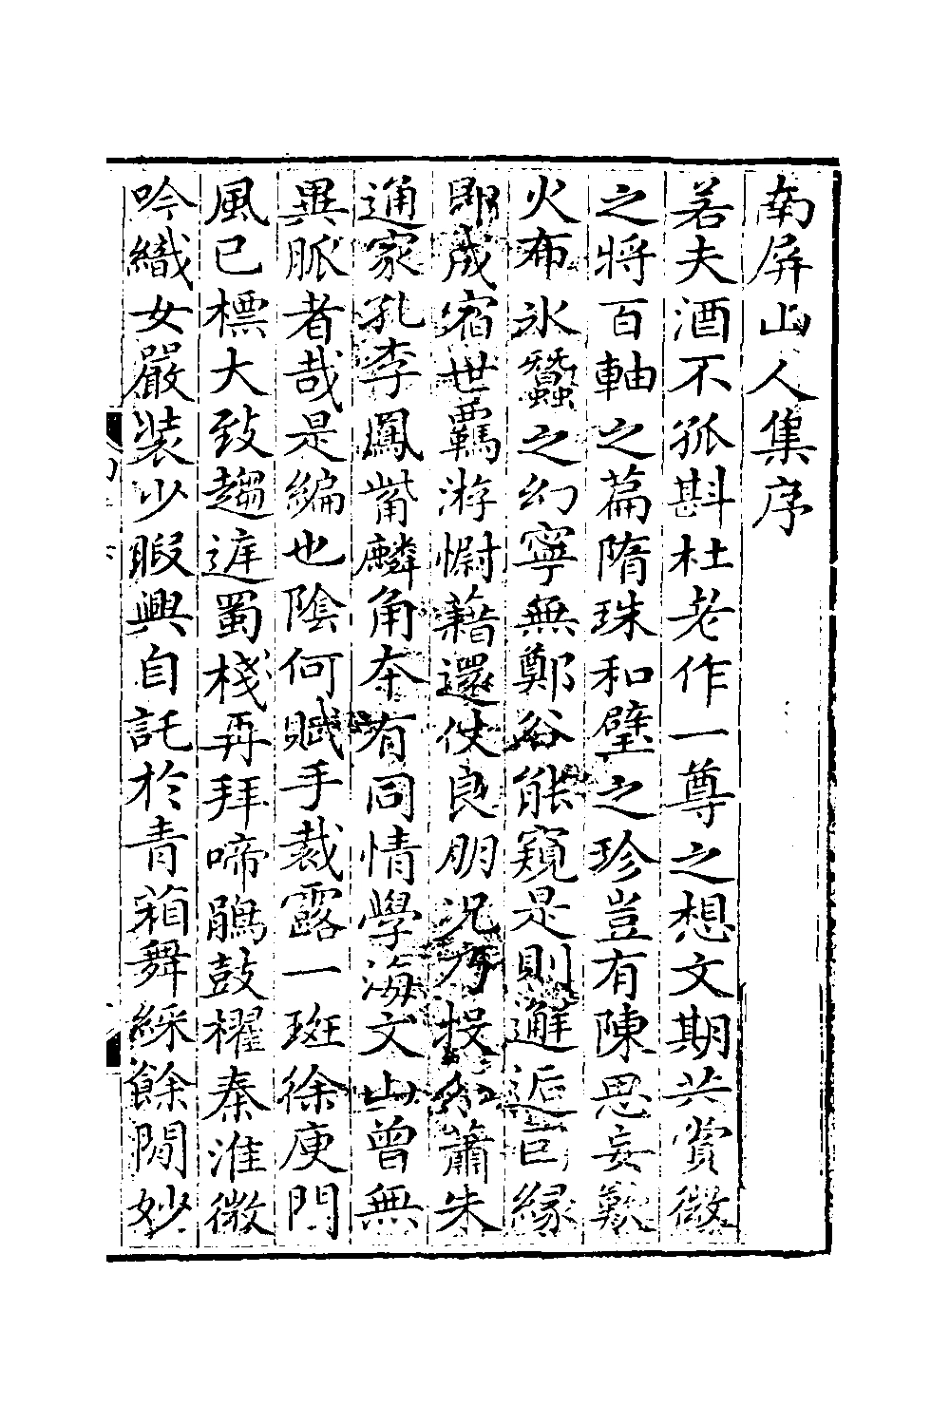 南屏山人集序
若夫酒不孤斟杜老作一尊之想文期共賞微
之將百軸之篇隋珠和璧之珍豈有陳思妄歎
火布氷蠶之幻寧無鄭谷能窺是則邂逅縁
卽成宿世羈游慰藉還仗良朋况乃投蕭朱
通家孔李鳳觜麟角本有同情學海文山曾無
異脈者哉是編也陰何賦手裁露一斑徐庾門
風已標大致趨迋蜀棧再拜啼鵑鼓櫂秦淮微
吟織女嚴裝少暇興自託於青箱舞綵餘閒妙